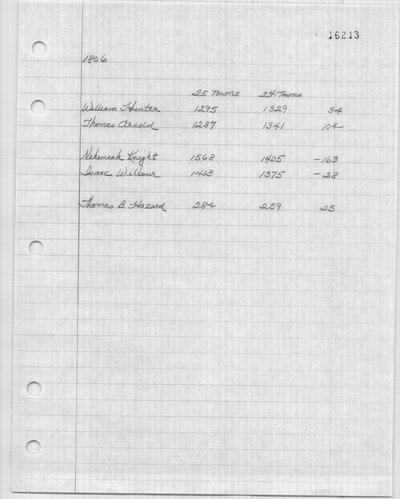 16213
1806
25 Towns 24 Towns
William Hunter 1295 1329 34
Thomas Arnold 1237 1341 104
Nehemiah Knight 1568 1405 -163
Isaac Wilbour 1403 1375 -28
Thomas B. Hazard 284 259 25